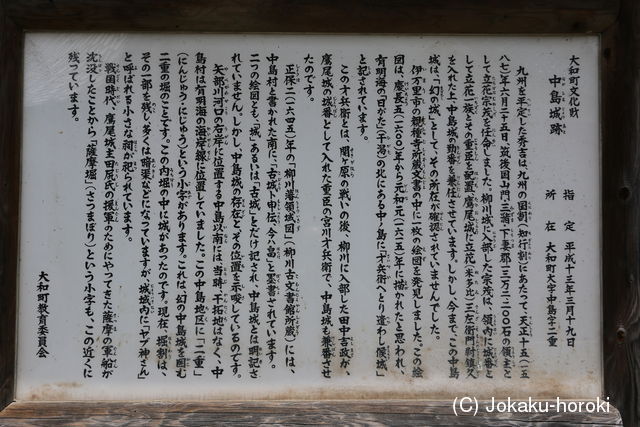 大和町文化財
中島城跡
指定 平成十三年三月十九日
所在 大和町大字中島字二重
九州を平定した秀吉は、九州の国割(知行割)にあたって、天正十五(一五
八七)年六月二十五日、筑後国山門・三潴・下妻郡(三万二一〇〇石)の領主と
して立花宗茂を任命しました。柳川城に入部した宗茂は、領内に城番と
して立花一族とその重臣を配置、鷹尾城に立花(米多比)三左衛門尉鎮久
を入れ、中島城の勤番を兼任させています。しかし、今まで、この中島
城は、「幻の城」として、その所在が確認されていませんでした。
伊万里市の親種寺所蔵文書の中に一枚の絵図を発見しました。この絵
図は、慶長五(一六〇〇)年から元和元(一六一五)年に描かれたと思われ、
有明海の「日かた」(干潟)の北にある中しまに「才兵衛へとり遣わし候城」
と記されています。
この才兵衛とは、関ヶ原の戦いの後、柳川に入部した田中吉政が、
鷹尾城の城番として入れた重臣の宮川才兵衛で、中島城も兼番させ
たのです。
正保二(一六四五)年の「柳川藩領域図」(柳川古文書館所蔵)には、
中島村と書かれた南に、「古城ト申伝、今ハ畠」と墨書されています。
二つの絵図とも、「城」あるいは「古城」とだけ記され、中島城とは明記さ
れていません。しかし、中島城の存在と、その位置を示唆しているのです。
矢部川河口の右岸に位置する中島以南には、当時、干拓地はなく、中
島村は有明海の海岸線に位置していました。この中島地区に「二重」
(にんじゅう・にじゅう)という小字があります。これは、幻の中島城を囲む
二重の堀のことです。この内堀の中に城があったのです。現在、堀割は、
その一部を残し、多くは暗渠などになっていますが、城域内に「ヤブ神さん」
と呼ばれる小さな祠が祀られています。
戦国時代、鷹尾城主田尻氏の援軍のためにやってきた薩摩の軍船が
沈没したことから「薩摩堀(さつまぼり)という小字も、この近くに
残っています。
大和町教育委員会
(C) Jokaku-horoki